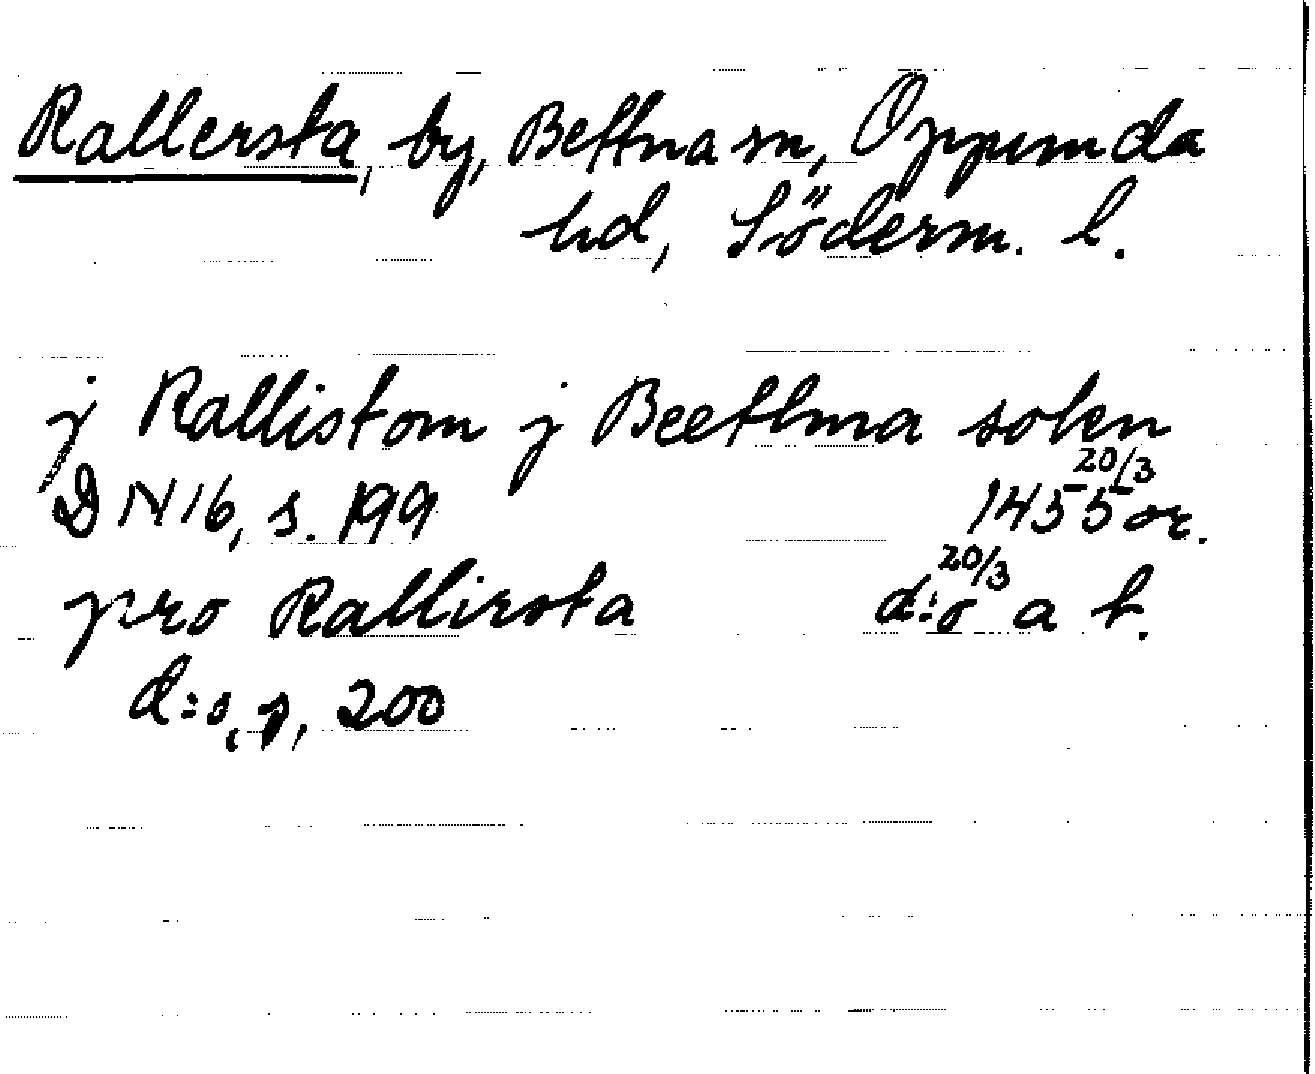 Rallersta, by, Bettna sn, Oppunda
hd, Söderm. l.
j Rallistom j Beethna sokn
20/3
DN 16, s. 199 1455 or.
pro Rallirsta d:o 20/3 a t.
d:o, s, 200